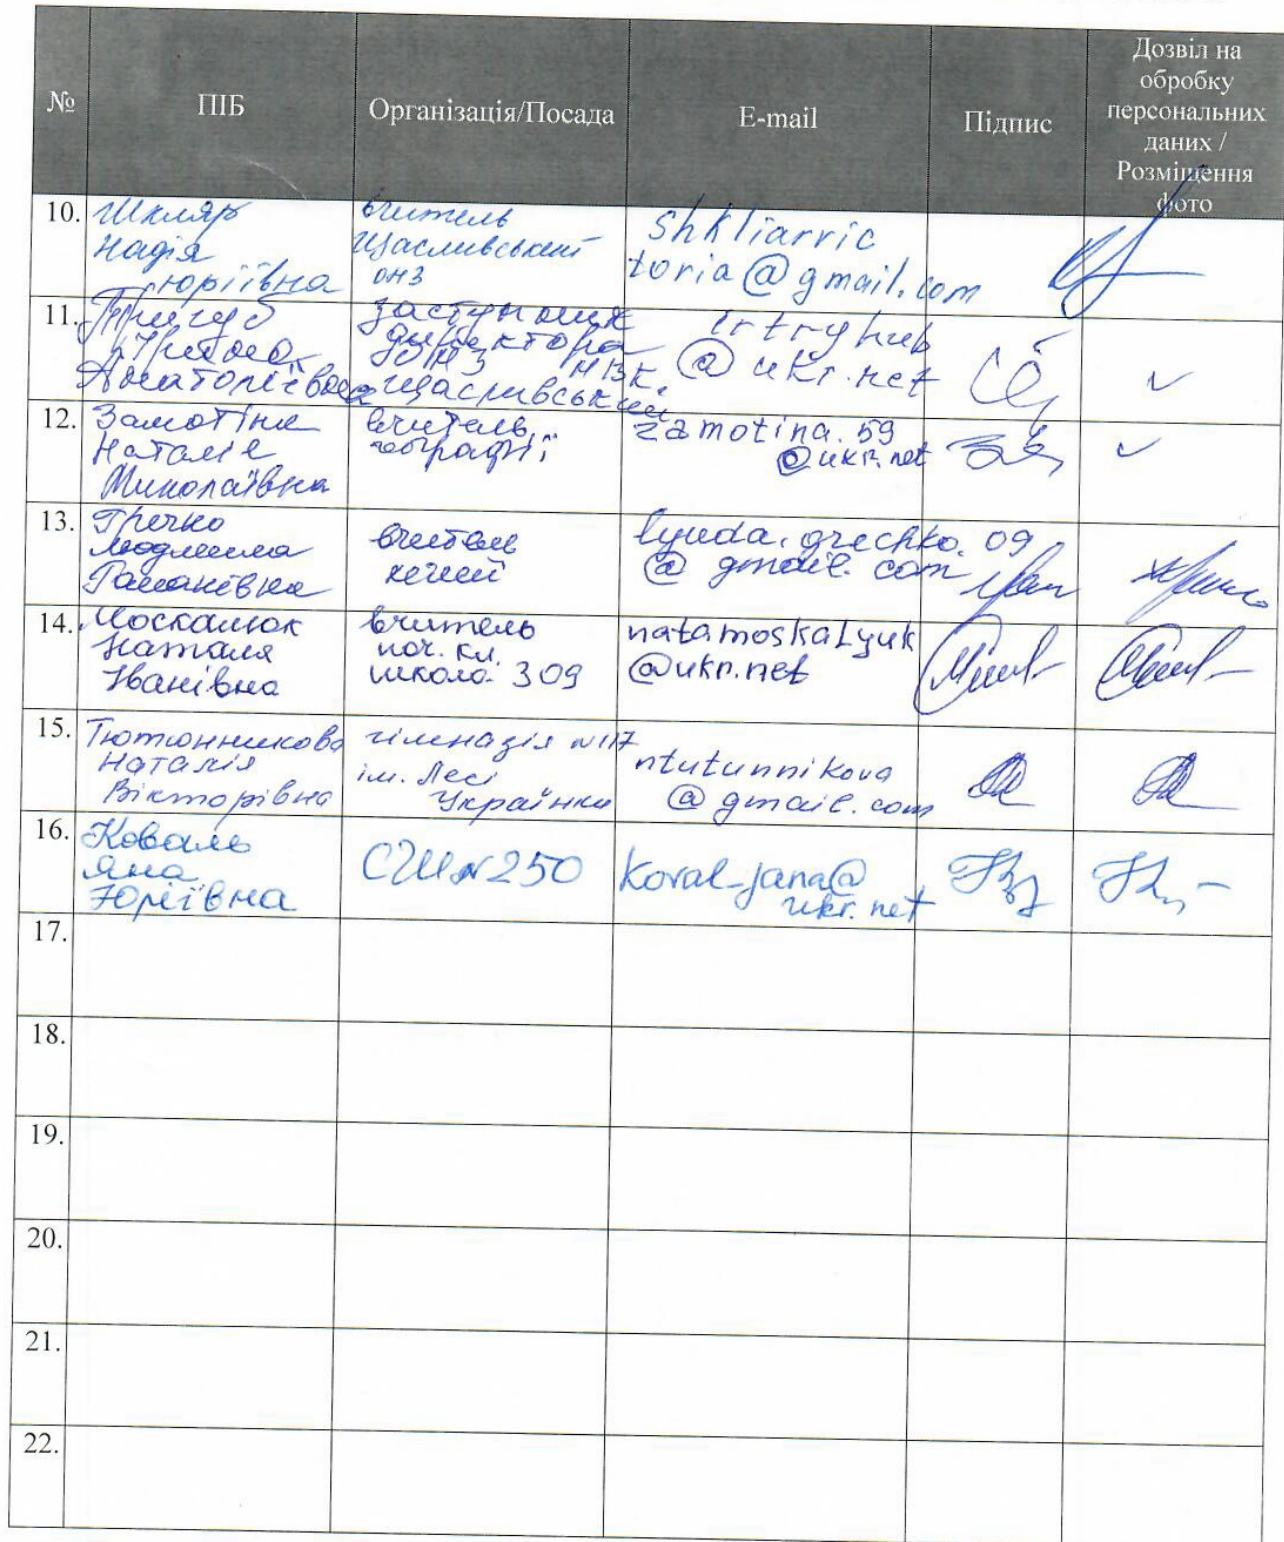 №
ПІБ
Організація/Посада
E-mail
Підпис
Дозвіл на
обробку
персональних
даних /
Розміщення
фото
10.
Шкляр
Надія
Юріївна
вчитель
Щасливський
ОНЗ
shkliarvic
toria@gmail.com
11.
Тригуб
Анатоліївна
заступник
директора
НВК
Щасливський
irtryhub
@ukr.net
12.
Замотіна
Наталія
Миколаївна
вчитель
географії
zamotina.59
@ukr.net
13.
Гречко
Людмила
вчитель
хімії
lyuda.grechko.09
@gmail.com
14.
Москалюк
Наталя
Іванівна
вчитель
поч. кл.
школа 309
natamoskalyuk
@ukr.net
15.
Тютюнникова
Наталія
Вікторівна
гімназія №117
ім. Лесі
Українки
ntutunnikova
@gmail.com
16.
Коваль
Яна
Юріївна
СЗШ №250
koval-jana@
ukr.net
17.
18.
19.
20.
21.
22.